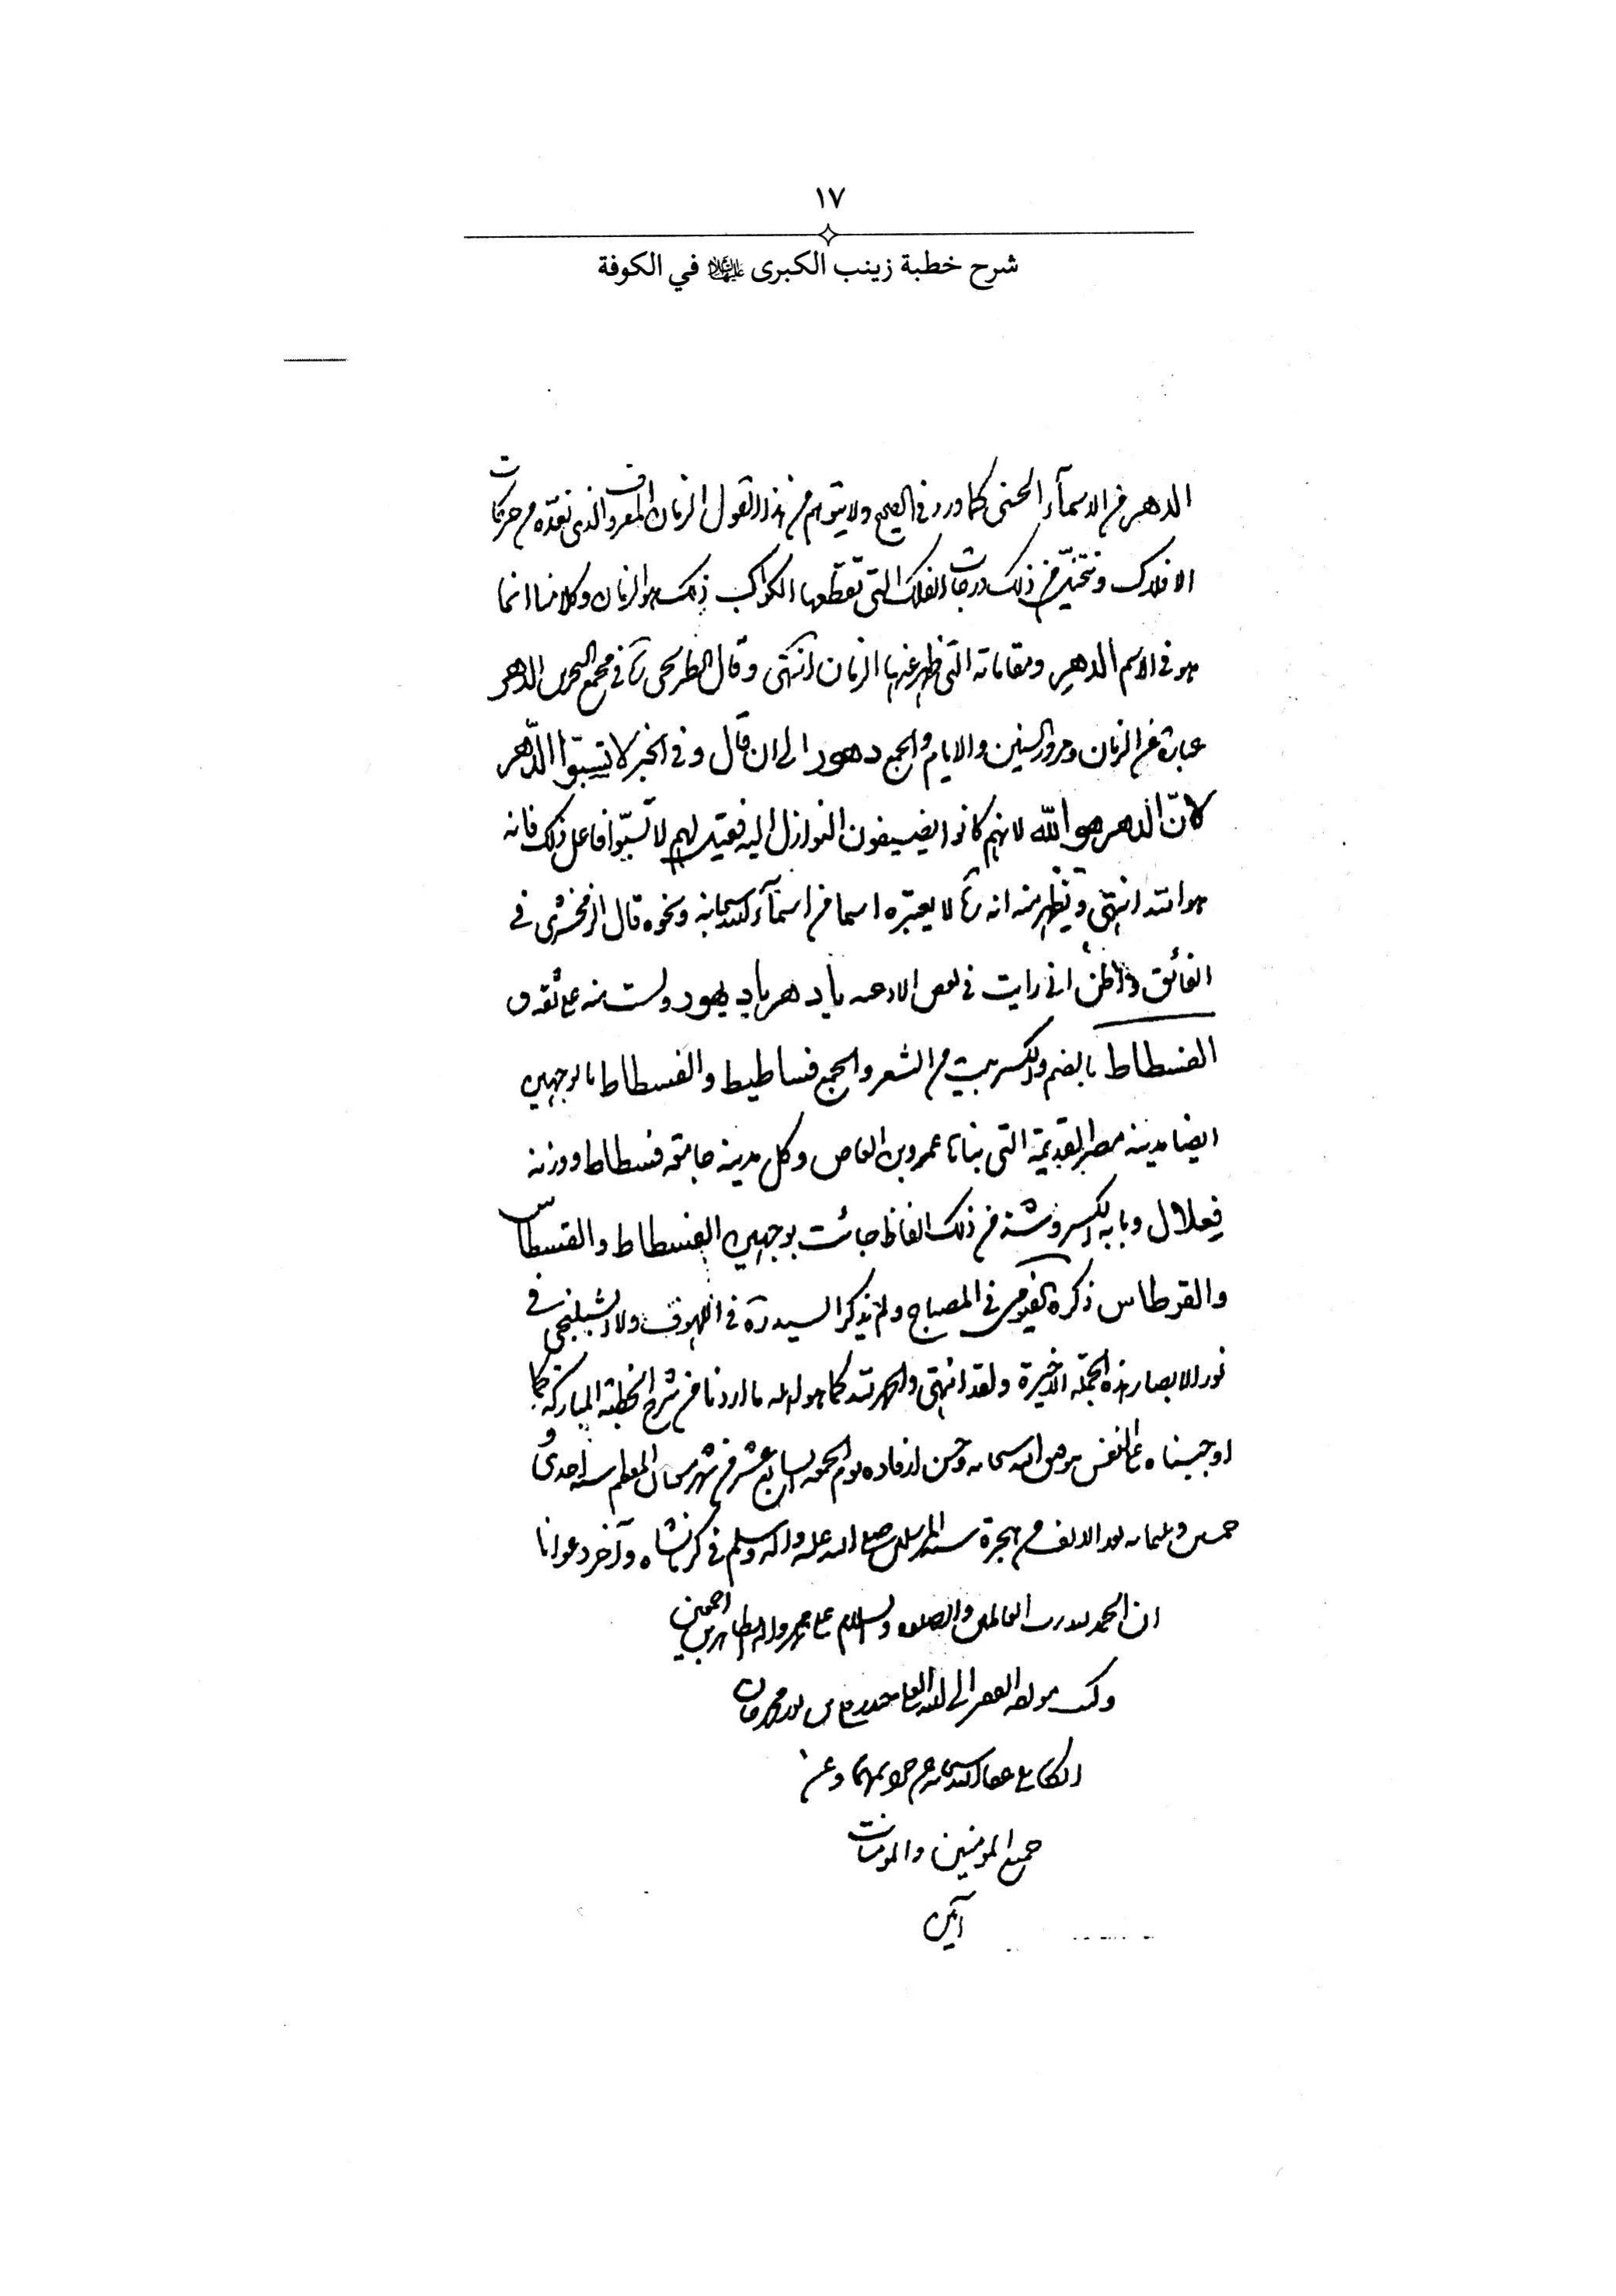 ١٧
شرح خطبة زينب الكبرى عليها السلام في الكوفة
الدهر من الاسمآء الحسنى كما ورد في الصحيح ولا يتوهم من هذا القول الزمان المعروف الذى نعدّه من حركات
الافلاك ونتخيّل من ذلك درجات الفلك التى تقطعها الكواكب ذلك هو الزمان وكلامنا انما
هو في الاسم الدهر ومقاماته التى ظهر عنها الزمان انتهى وقال الطريحى ره في مجمع البحرين الدهر
عبارة عن الزمان ومرور السنين والايام والجمع دهور الى ان قال وفي الخبر لا تسبّوا الدّهر
لانّ الدهر هو الله لانهم كانوا يضيفون النوازل اليه فقيل لهم لا تسبّوا فاعل ذلك فانه
هو الله انتهى ويظهر منه انه ره لا يعتبره اسما من اسمآء الله سبحانه ونحوه قال الزمخشرى في
الفائق واظن انى رايت في بعض الادعيه يا دهر يا ديهور ولست منه على ثقه و
الفسطاط بالضم والكسر بيت من الشعر والجمع فساطيط والفسطاط بالوجهين
ايضا مدينه مصر القديمة التى بناها عمرو بن العاص وكل مدينه جامعه فسطاط ووزنه
فِعلال وبابه الكسر وشذ من ذلك الفاظ جائت بوجهين الفسطاط والقسطاس
والقرطاس ذكره الفيومى في المصباح ولم يذكر السيد ره في اللهوف ولا الشبلنجى في
نور الابصار هذه الجملة الاخيرة ولقد انتهى والحمد لله كما هو اهله ما اردنا من شرح الخطبة المباركة كما
اوجبناه على النفس بتوفيق الله سبحانه وحسن ارفاده يوم الجمعه السابع عشر من شهر شعبان المعظم سنه احدى و
خمسين وثلثمائه بعد الالف من هجرة سيد المرسلين صلى الله عليه واله وسلم في كرمانشاه وآخر دعوانا
ان الحمد لله رب العالمين والصلوه والسلام على محمد واله الطاهرين اجمعين
وكتب مولفه الفقير الى الله الغنى حيدر قلى بن نور محمد خان
الكابلى عفا الله سبحانه عن جرايمهما وعن
جميع المومنين والمومنات
آمين